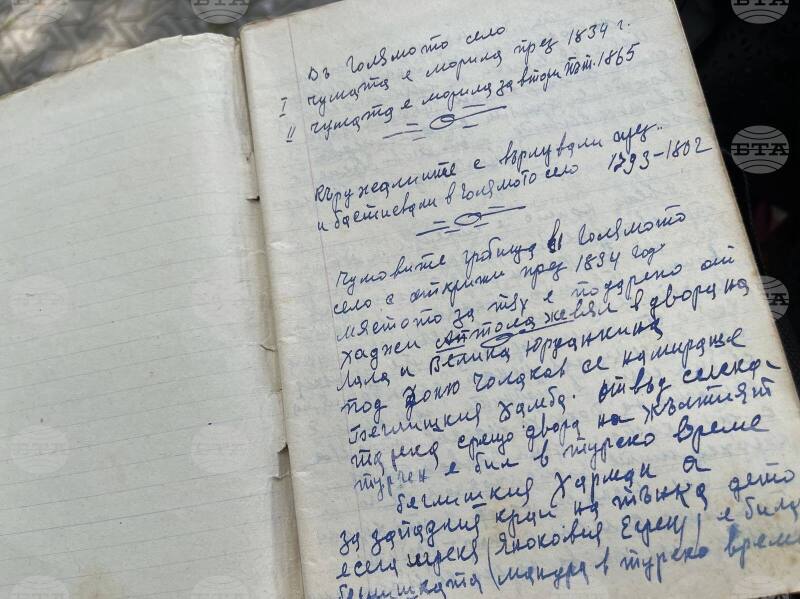 Въ голямото село
I чумата е морила през 1834 г.
II чумата е морила за втори път. 1865
кържалиите с върлували през
и бастисвали в голямото село 1793-1802
Чумовите гробища в голямото
село е открити през 1834 год
мястото за тях е подарено от
Хаджи Аптола жевял в двора на
Лала и Велика Юрданкина
под Доню Чолаков се намираше
Беглишкия Хамба. отвъд селска-
та река срещо двора на жълтият
турчен е бил в турско време
беглишкия Харман а
за западния край на тънка дето
есега игрека (Янковия Егрец) е била
беглишката (мандра в турско време
БТА
БТА
БТА